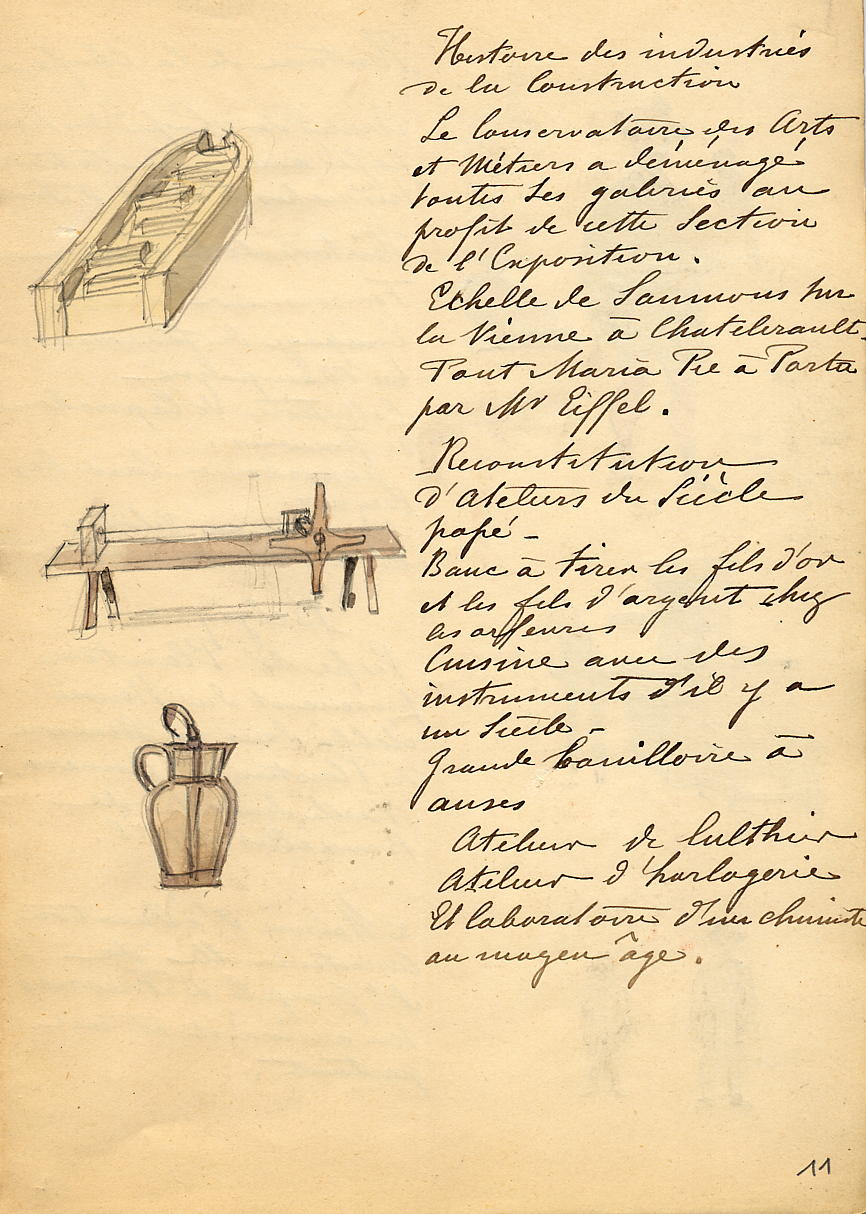 Histoire des industries
de la Construction
Le Conservatoire des Arts
et Métiers a déménagé
toutes ses galeries au
profit de cette Section
de l'Exposition.
Echelle de Saumons sur
la Vienne à Chatelerault.
Pont Maria Pie à Porto
par Mr Eiffel.
Reconstitution
d'Ateliers du Siècle
passé -
Banc à tirer les fils d'or
et les fils d'argent chez
les orfevres
Cuisine avec des
instruments d'il y a
un Siècle -
Grande bouilloire à
anses
Atelier de lulthier
Atelier d'horlogerie
Et laboratoire d'un chimiste
au moyen âge.
11